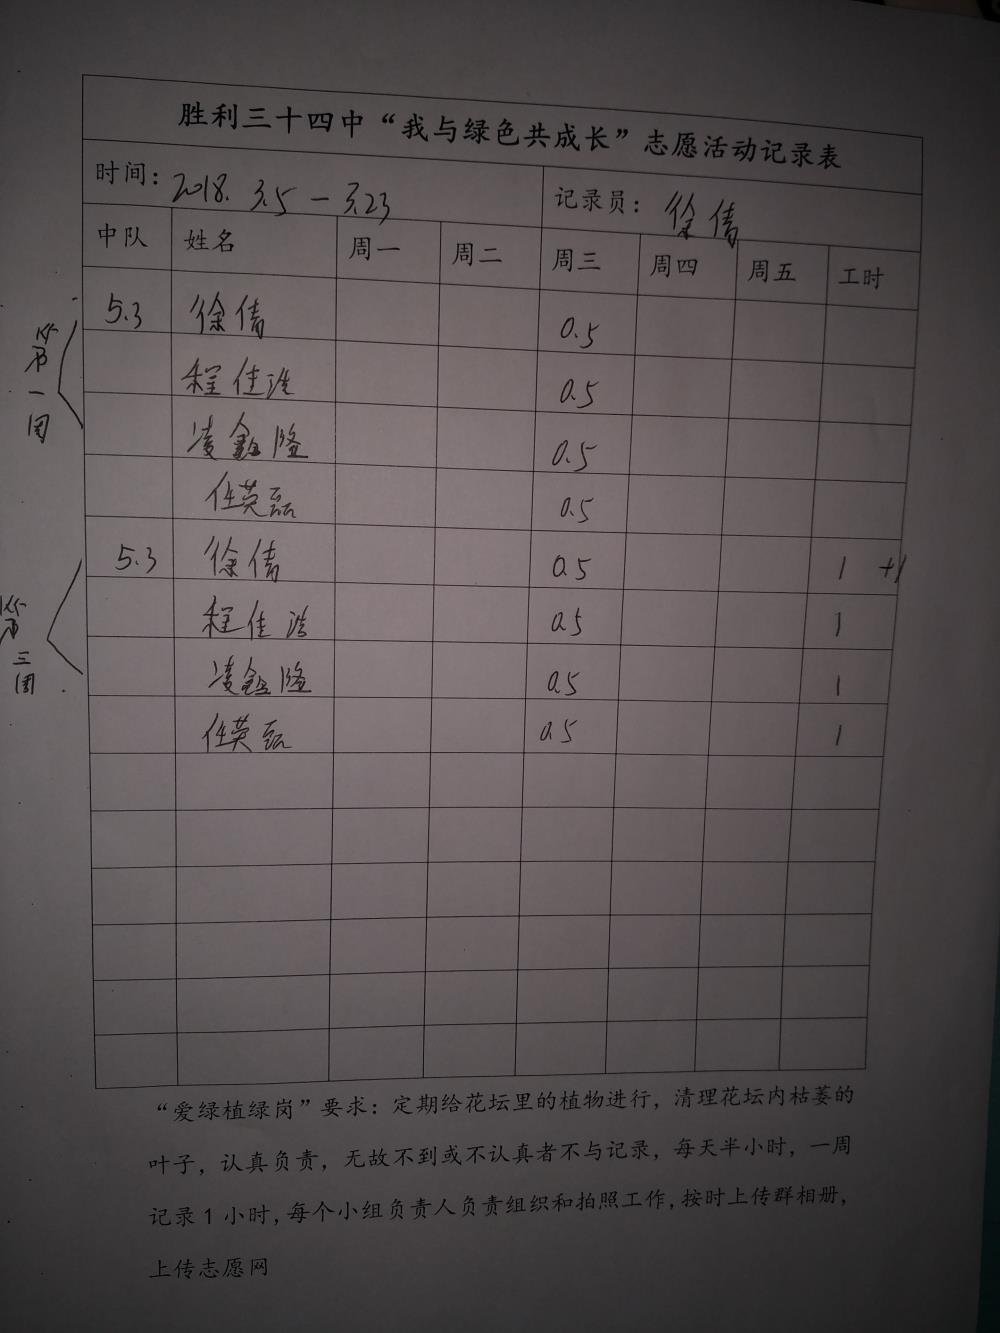 胜利三十四中“我与绿色共成长”志愿活动记录表
时间：2018. 3.5 — 3.23 记录员：徐倩
中队 姓名 周一 周二 周三 周四 周五 工时
第一周
5.3 徐倩 0.5
程佳浩 0.5
凌鑫隆 0.5
任英磊 0.5
第三周
5.3 徐倩 0.5 1 +1
程佳浩 0.5 1
凌鑫隆 0.5 1
任英磊 0.5 1
“爱绿植绿岗”要求：定期给花坛里的植物进行，清理花坛内枯萎的
叶子，认真负责，无故不到或不认真者不与记录，每天半小时，一周
记录1小时，每个小组负责人负责组织和拍照工作，按时上传群相册，
上传志愿网